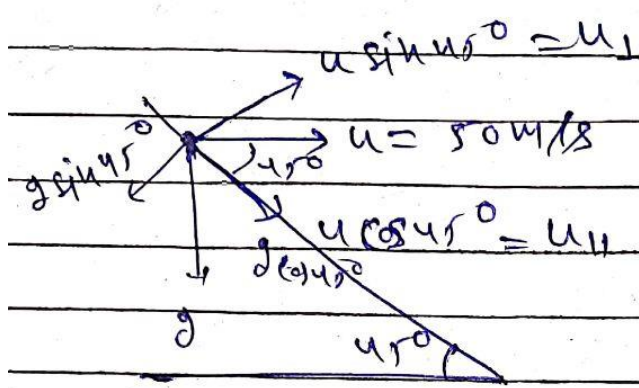 u sin 45° = u⊥
u = 50 m/s
g sin 45°
45°
u cos 45° = u||
g cos 45°
g
45°